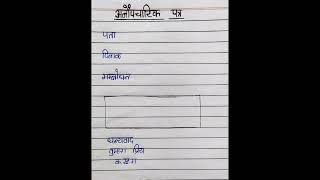 अनौपचारिक पत्र
पता
दिनांक
सम्बोधन
धन्यवाद
तुम्हारा प्रिय
क.ख.ग